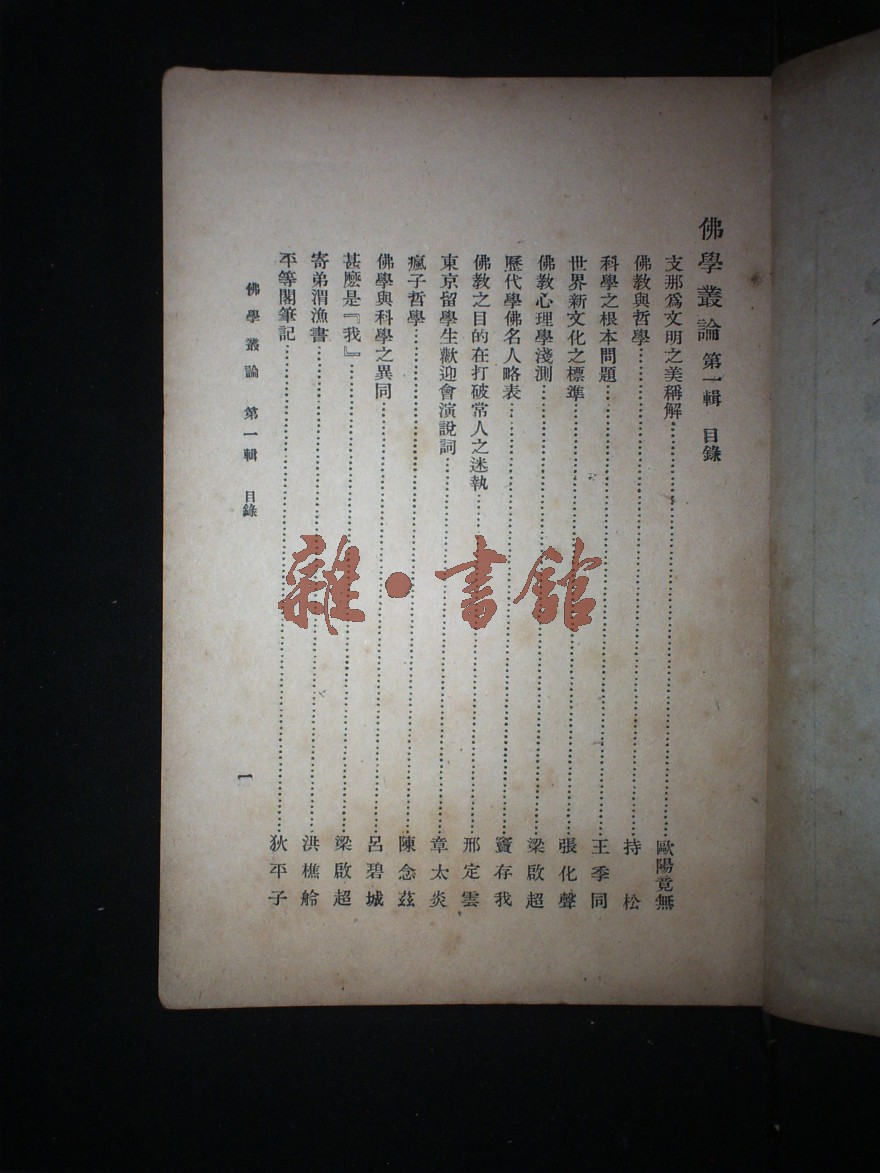 佛學叢論 第一輯 目錄
支那爲文明之美稱解……歐陽竟無
佛教與哲學……持松
科學之根本問題……王季同
世界新文化之標準……張化聲
佛教心理學淺測……梁啟超
歷代學佛名人略表……竇存我
佛教之目的在打破常人之迷執……邢定雲
東京留學生歡迎會演說詞……章太炎
瘋子哲學……陳念茲
佛學與科學之異同……呂碧城
甚麽是『我』……梁啟超
寄弟渭漁書……洪樵舲
平等閣筆記……狄平子
佛學叢論 第一輯 目錄 一
雜·書館